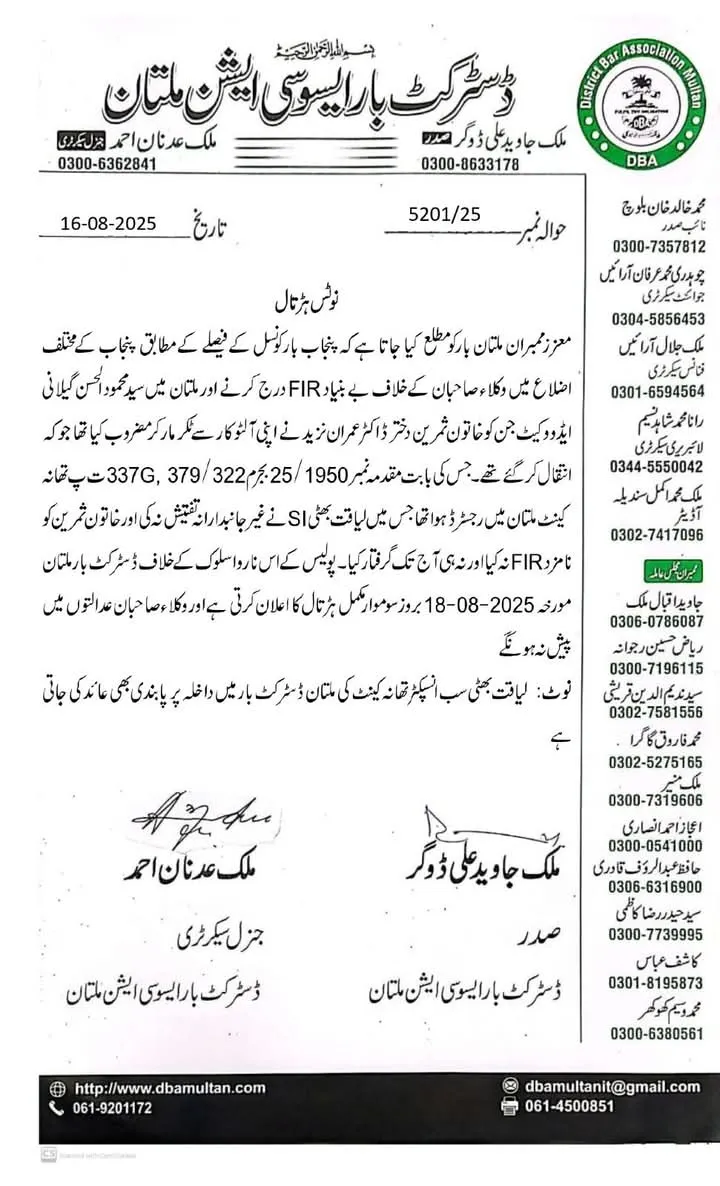 بسم اللہ الرحمن الرحیم
ڈسٹرکٹ بار ایسوسی ایشن ملتان
ملک جاوید علی ڈوگر صدر
0300-8633178
ملک عدنان احمد جنرل سیکرٹری
0300-6362841
District Bar Association Multan
DBA
DBA
حوالہ نمبر 5201/25
تاریخ 16-08-2025
نوٹس ہڑتال
معزز ممبران ملتان بار کو مطلع کیا جاتا ہے کہ پنجاب بار کونسل کے فیصلے کے مطابق پنجاب کے مختلف
اضلاع میں وکلاء صاحبان کے خلاف بے بنیاد FIR درج کرنے اور ملتان میں سید محمود الحسن گیلانی
ایڈووکیٹ جن کو خاتون ثمرین دختر ڈاکٹر عمران نزید نے اپنی آلٹو کار سے ٹکر مار کر مضروب کیا تھا جو کہ
انتقال کر گئے تھے۔ جس کی بابت مقدمہ نمبر 25/1950 بجرم 322/379 ,337G ت پ تھانہ
کینٹ ملتان میں رجسٹرڈ ہوا تھا جس میں لیاقت بھٹی SI نے غیر جانبدارانہ تفتیش نہ کی اور خاتون ثمرین کو
نامزد FIR نہ کیا اور نہ ہی آج تک گرفتار کیا۔ پولیس کے اس ناروا سلوک کے خلاف ڈسٹرکٹ بار ملتان
مورخہ 18-08-2025 بروز سوموار مکمل ہڑتال کا اعلان کرتی ہے اور وکلاء صاحبان عدالتوں میں
پیش نہ ہونگے
نوٹ: لیاقت بھٹی سب انسپکٹر تھانہ کینٹ کی ملتان ڈسٹرکٹ بار میں داخلہ پر پابندی بھی عائد کی جاتی
ہے
ملک جاوید علی ڈوگر
صدر
ڈسٹرکٹ بار ایسوسی ایشن ملتان
ملک عدنان احمد
جنرل سیکرٹری
ڈسٹرکٹ بار ایسوسی ایشن ملتان
محمد خالد خان بلوچ
نائب صدر
0300-7357812
چوہدری محمد عرفان آرائیں
جوائنٹ سیکرٹری
0304-5856453
ملک جلال آرائیں
فنانس سیکرٹری
0301-6594564
رانا محمد شاہد نسیم
لائبریری سیکرٹری
0344-5550042
ملک محمد اکمل سندیلہ
آڈیٹر
0302-7417096
ممبران مجلس عاملہ
جاوید اقبال ملک
0306-0786087
ریاض حسین رجوانہ
0300-7196115
سید ندیم الدین قریشی
0302-7581556
محمد فاروق گاگرا
0302-5275165
ملک منیر
0300-7319606
اعجاز احمد انصاری
0300-0541000
حافظ عبدالرؤف قادری
0306-6316900
سید حیدر رضا کاظمی
0300-7739995
کاشف عباس
0301-8195873
محمد وسیم کھوکھر
0300-6380561
http://www.dbamultan.com
061-9201172
dbamultanit@gmail.com
061-4500851
CS